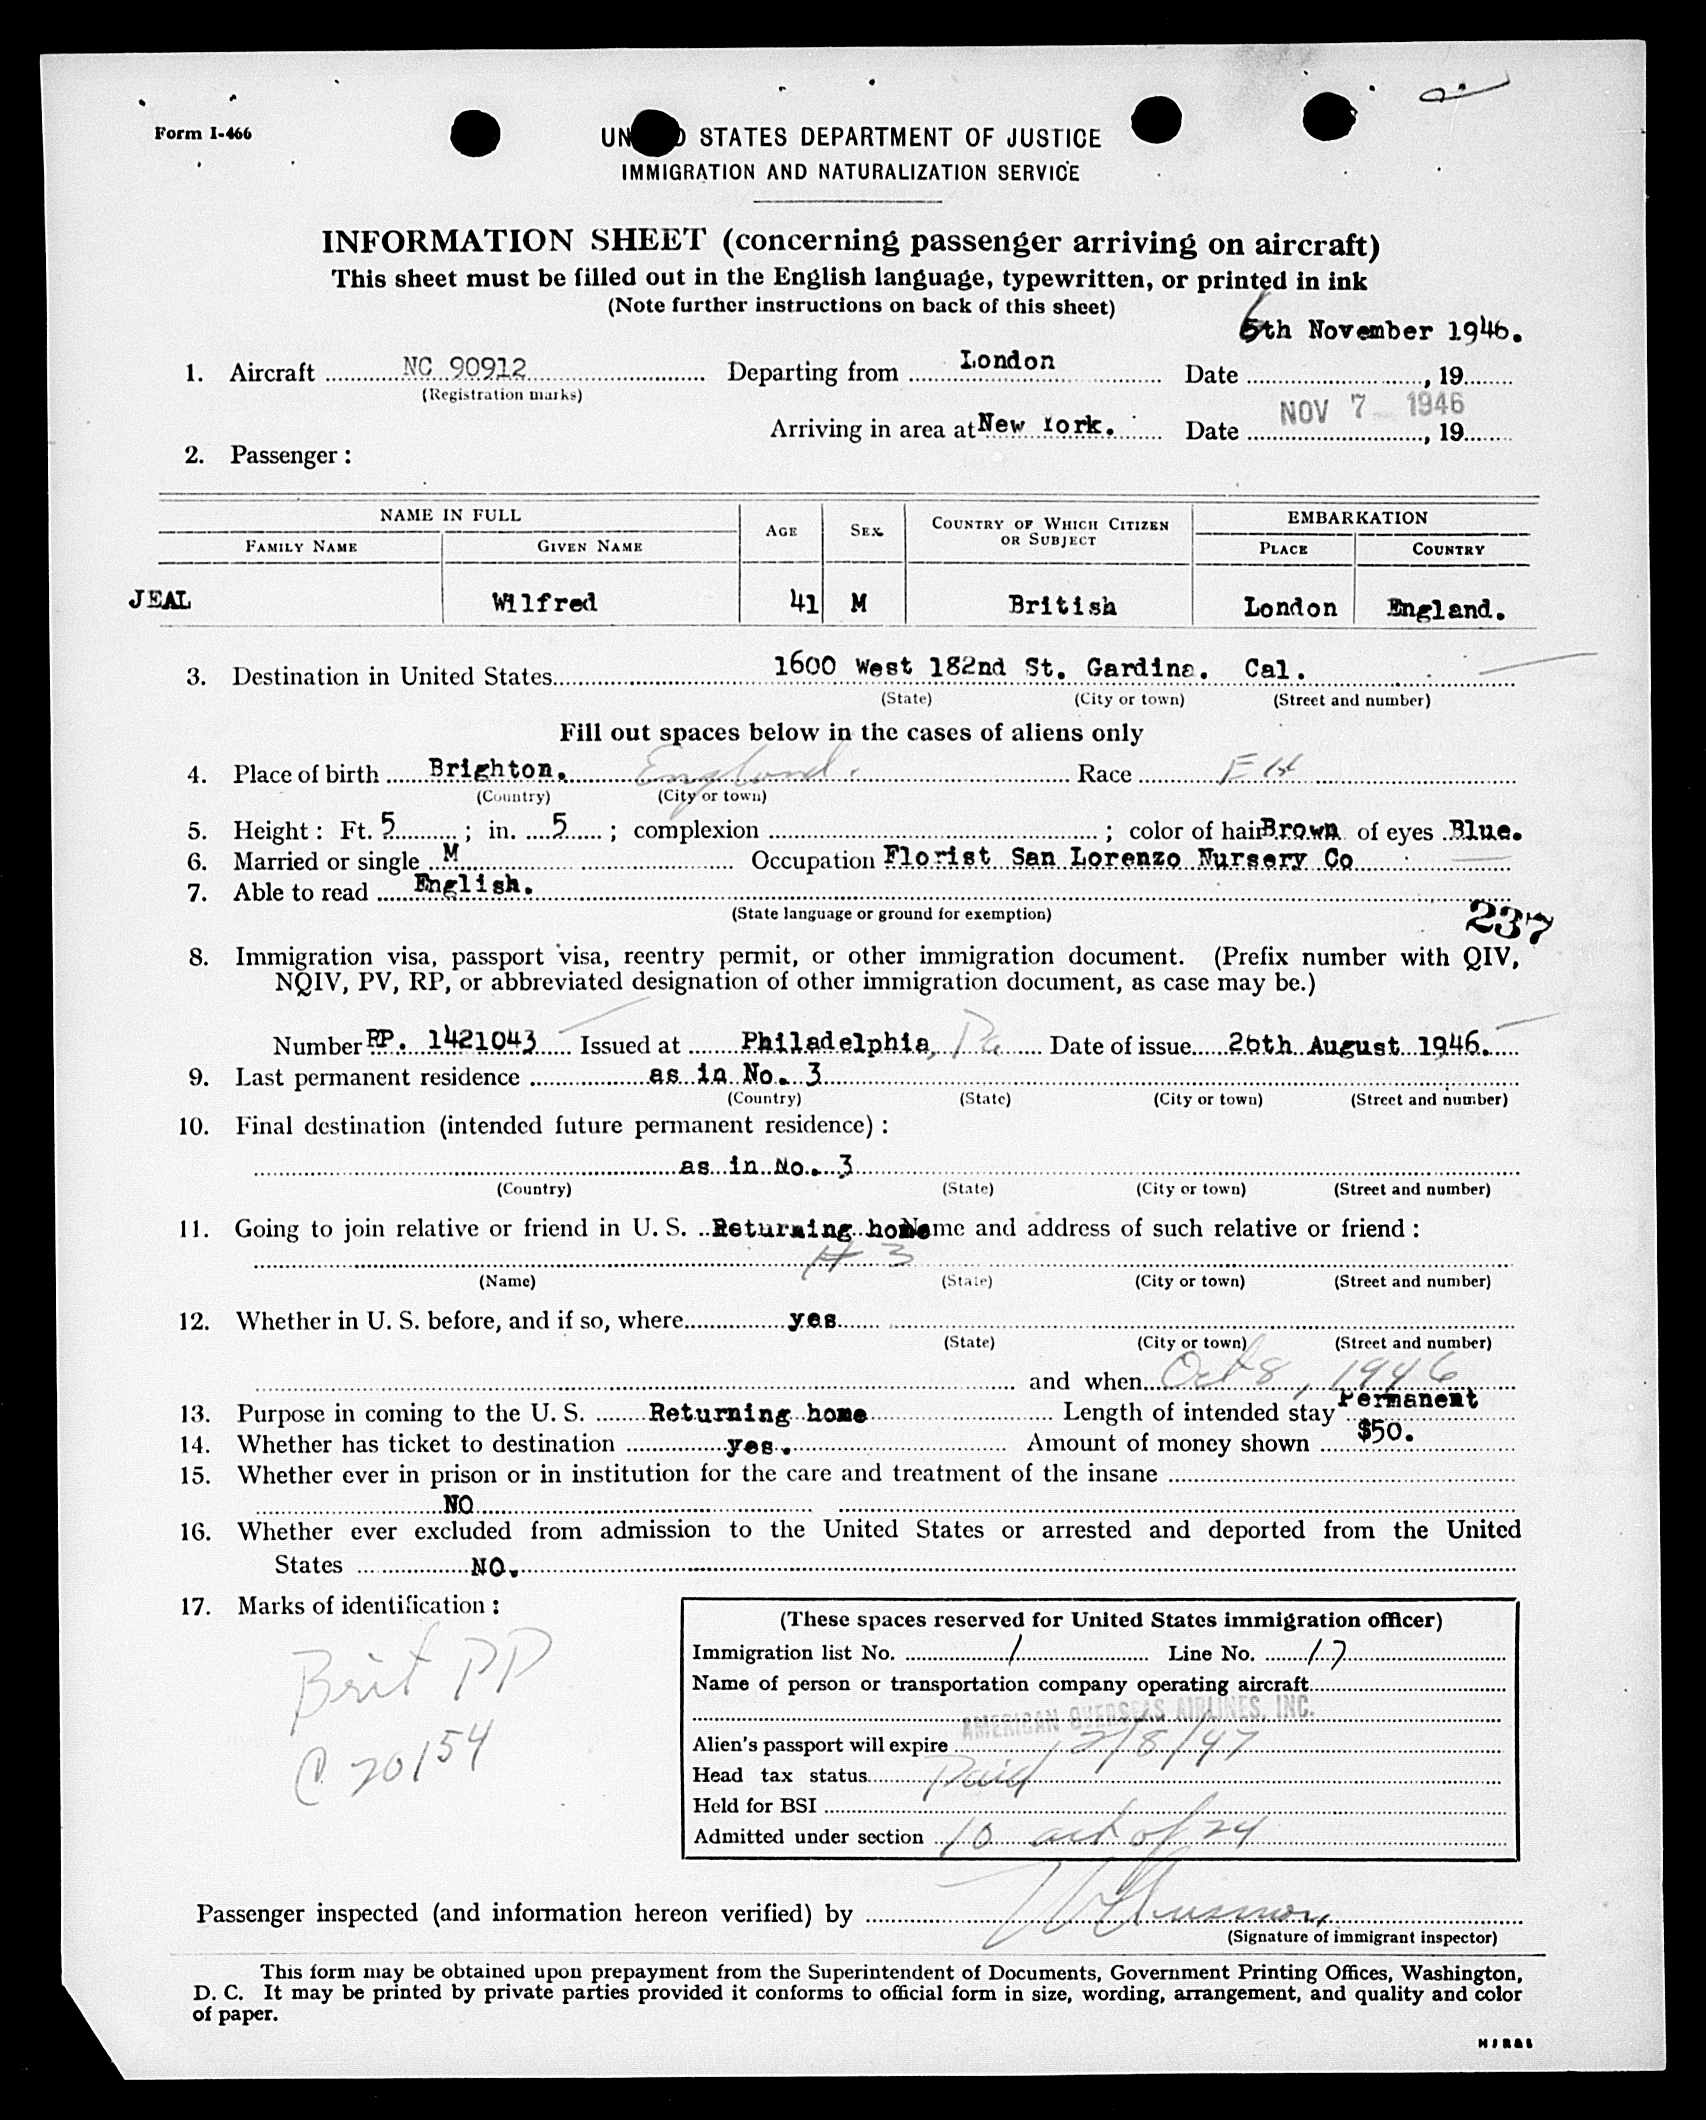 Form I-466
UNITED STATES DEPARTMENT OF JUSTICE
IMMIGRATION AND NATURALIZATION SERVICE
INFORMATION SHEET (concerning passenger arriving on aircraft)
This sheet must be filled out in the English language, typewritten, or printed in ink
(Note further instructions on back of this sheet)
6th November 1946.
1. Aircraft NC 90912 Departing from London Date , 19
(Registration marks)
NOV 7 1946
Arriving in area at New York. Date , 19
2. Passenger :
NAME IN FULL AGE SEX COUNTRY OF WHICH CITIZEN OR SUBJECT EMBARKATION
FAMILY NAME GIVEN NAME PLACE COUNTRY
JEAL Wilfred 41 M British London England.
3. Destination in United States 1600 West 182nd St. Gardina. Cal.
(State) (City or town) (Street and number)
Fill out spaces below in the cases of aliens only
4. Place of birth Brighton. England. Race
(Country) (City or town)
5. Height : Ft. 5 ; in. 5 ; complexion ; color of hair Brown of eyes Blue.
6. Married or single M Occupation Florist San Lorenzo Nursery Co
7. Able to read English.
(State language or ground for exemption)
237
8. Immigration visa, passport visa, reentry permit, or other immigration document. (Prefix number with QIV,
NQIV, PV, RP, or abbreviated designation of other immigration document, as case may be.)
Number RP. 1421043 Issued at Philadelphia, Pa Date of issue 26th August 1946.
9. Last permanent residence as in No. 3
(Country) (State) (City or town) (Street and number)
10. Final destination (intended future permanent residence) :
as in No. 3
(Country) (State) (City or town) (Street and number)
11. Going to join relative or friend in U. S. Returning home Name and address of such relative or friend :
# 3
(Name) (State) (City or town) (Street and number)
12. Whether in U. S. before, and if so, where yes
(State) (City or town) (Street and number)
and when Oct 8, 1946
13. Purpose in coming to the U. S. Returning home Length of intended stay Permanent
14. Whether has ticket to destination yes. Amount of money shown $50.
15. Whether ever in prison or in institution for the care and treatment of the insane
NO
16. Whether ever excluded from admission to the United States or arrested and deported from the United
States NO.
17. Marks of identification :
Brit PP
C 20154
(These spaces reserved for United States immigration officer)
Immigration list No. 1 Line No. 17
Name of person or transportation company operating aircraft
AMERICAN OVERSEAS AIRLINES, INC.
Alien's passport will expire 12/8/47
Head tax status Paid
Held for BSI
Admitted under section 10 act of 24
Passenger inspected (and information hereon verified) by
(Signature of immigrant inspector)
This form may be obtained upon prepayment from the Superintendent of Documents, Government Printing Offices, Washington,
D. C. It may be printed by private parties provided it conforms to official form in size, wording, arrangement, and quality and color
of paper.